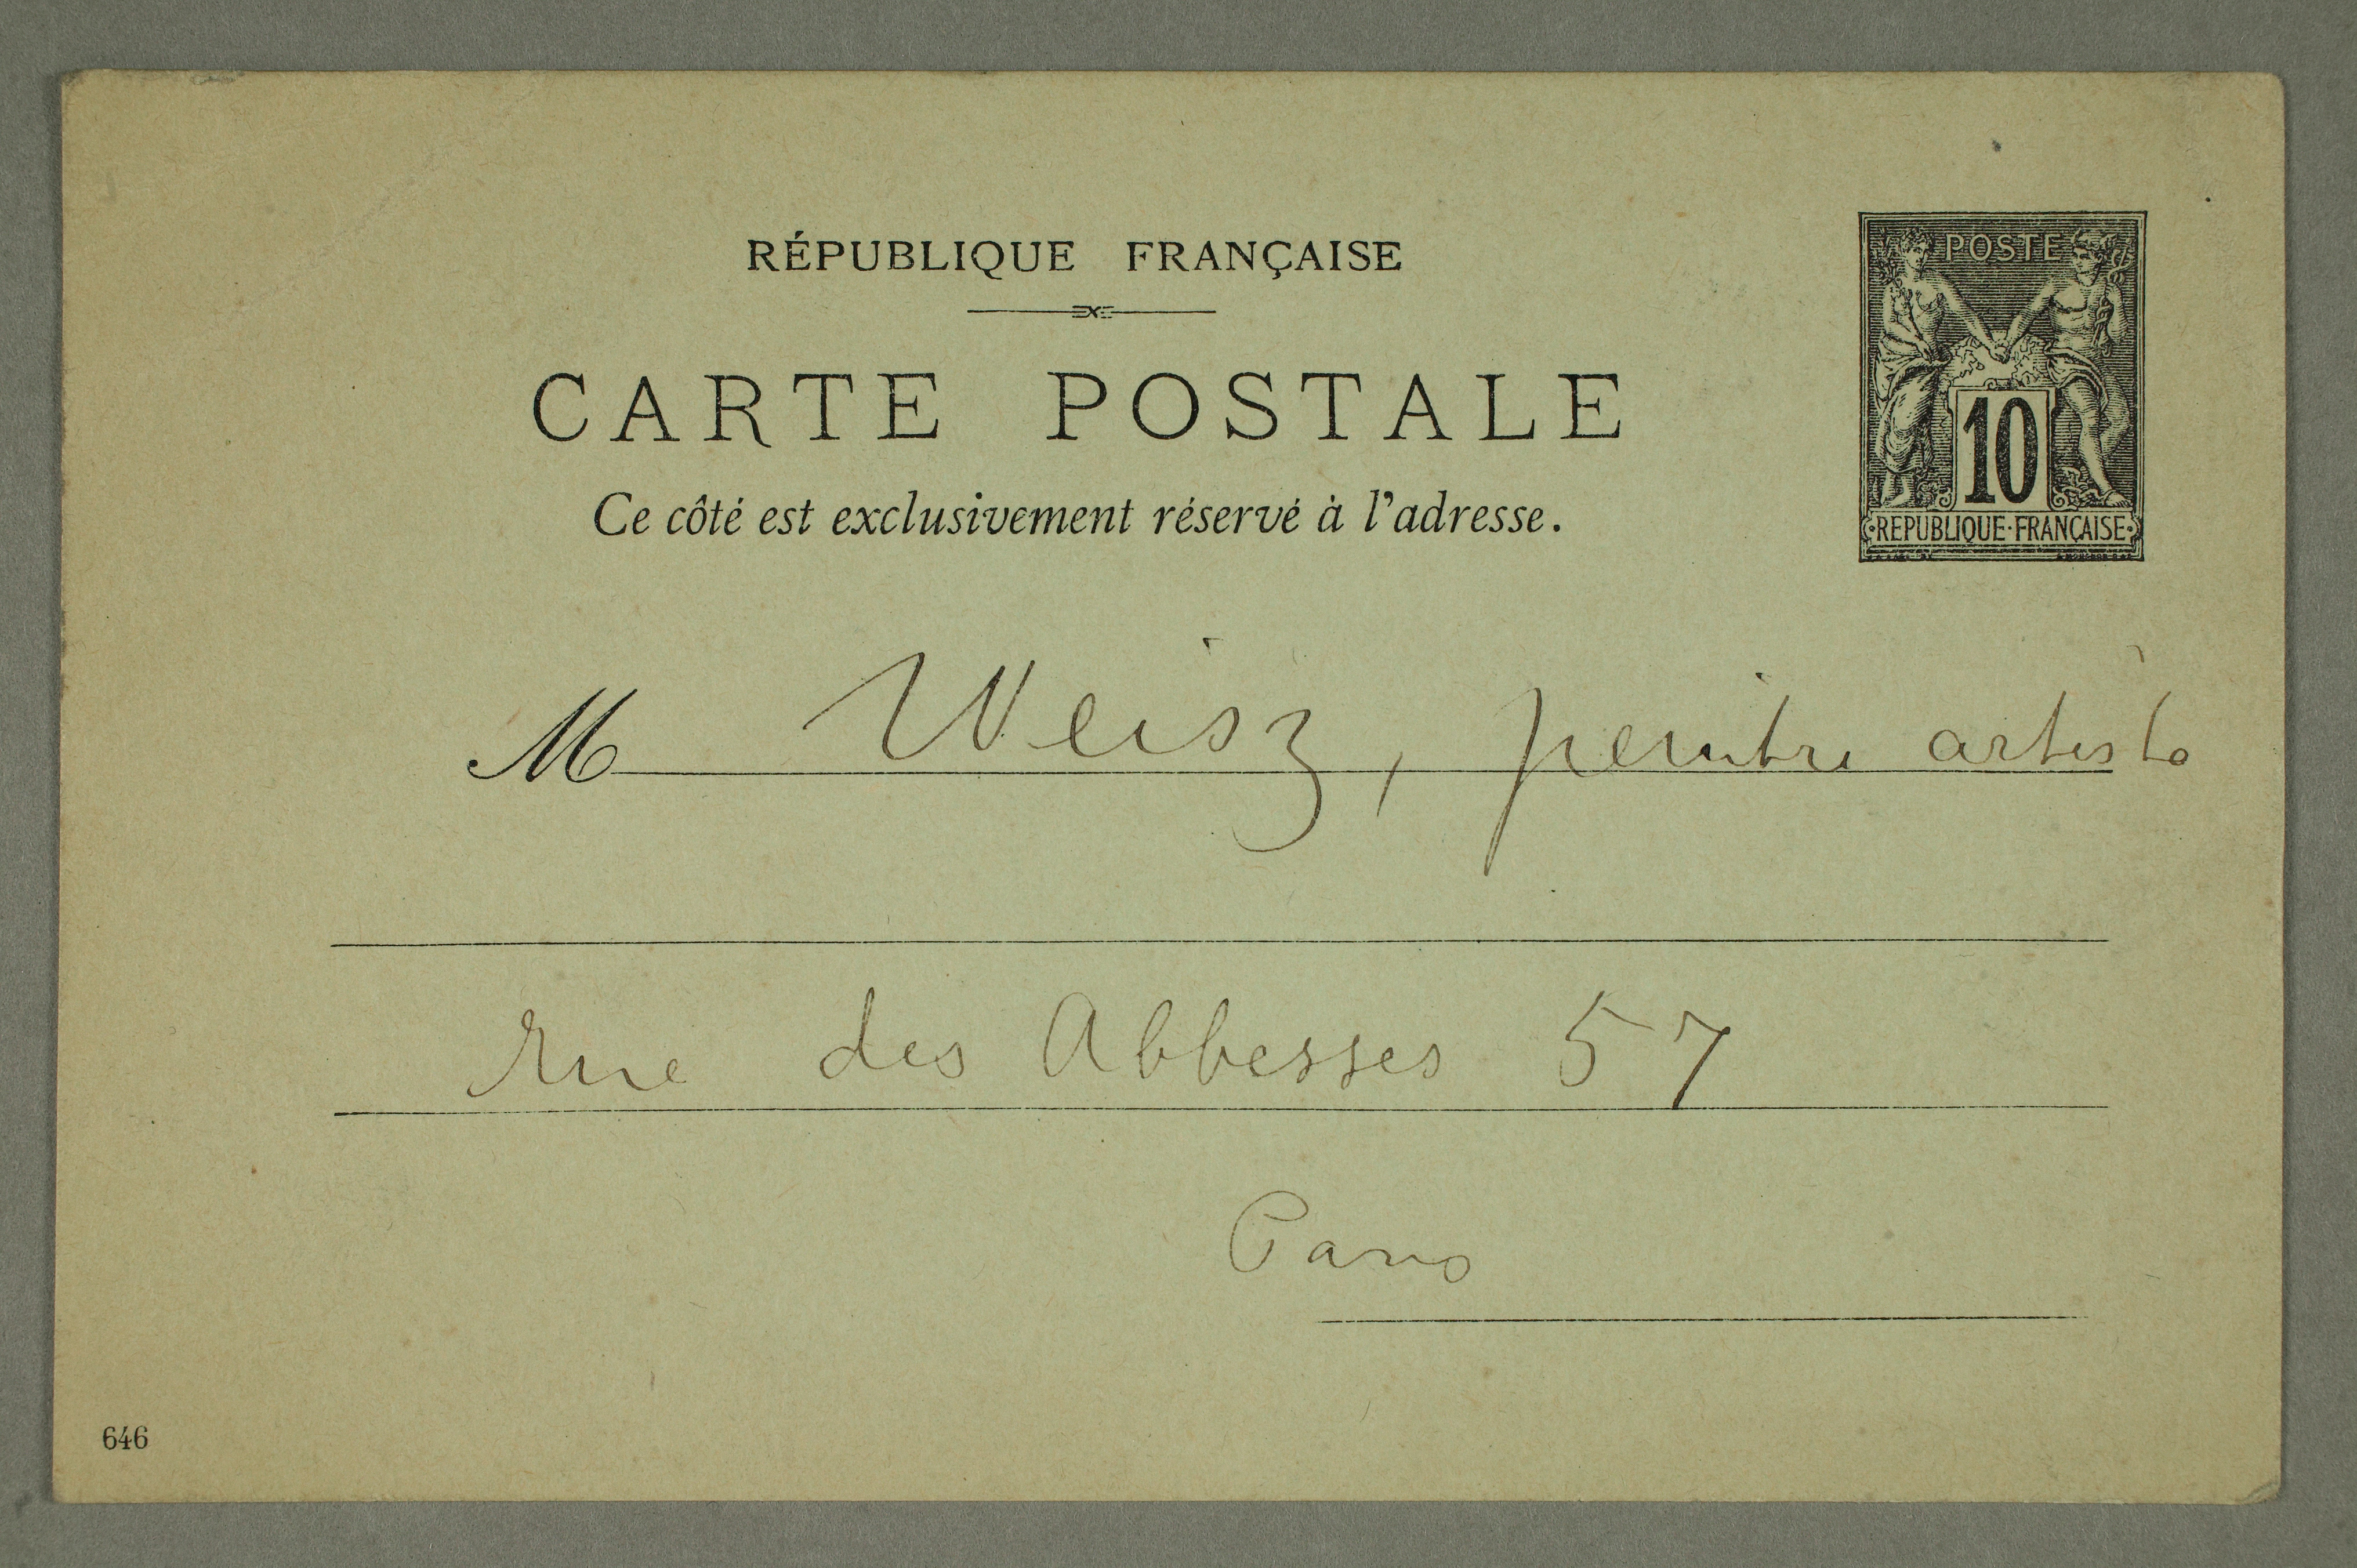 RÉPUBLIQUE FRANÇAISE
CARTE POSTALE
Ce côté est exclusivement réservé à l'adresse.
POSTE
10
REPUBLIQUE FRANÇAISE
M Weisz, peintre artiste
rue des Abbesses 57
Paris
646